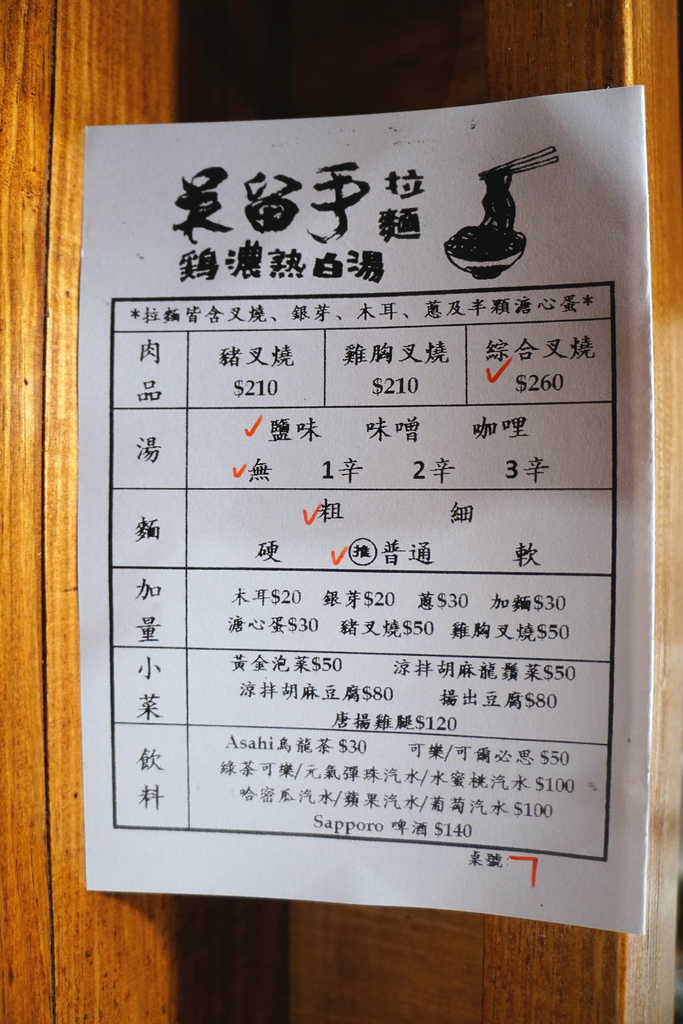 吳留手
拉麵
鶏濃熟白湯
*拉麵皆含叉燒、銀芽、木耳、蔥及半顆溏心蛋*
肉品
豬叉燒 雞胸叉燒 綜合叉燒
$210 $210 $260
湯
鹽味 味噌 咖哩
無 1辛 2辛 3辛
麵
粗 細
硬 推 普通 軟
加量
木耳$20 銀芽$20 蔥$30 加麵$30
溏心蛋$30 豬叉燒$50 雞胸叉燒$50
小菜
黃金泡菜$50 涼拌胡麻龍鬚菜$50
涼拌胡麻豆腐$80 揚出豆腐$80
唐揚雞腿$120
飲料
Asahi烏龍茶 $30 可樂/可爾必思 $50
綠茶可樂/元氣彈珠汽水/水蜜桃汽水 $100
哈密瓜汽水/蘋果汽水/葡萄汽水 $100
Sapporo 啤酒 $140
桌號: 7